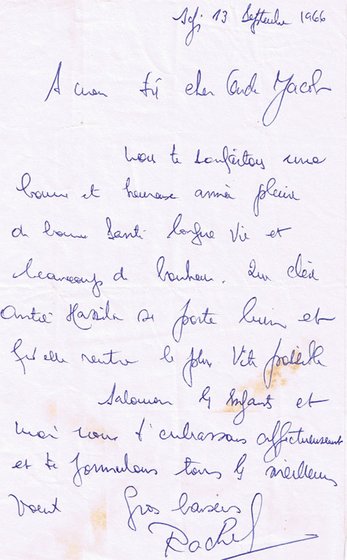 Safi 13 Septembre 1966
A mon très cher Oncle Jacob
Nous te souhaitons une
bonne et heureuse année pleine
de bonne Santé longue Vie et
beaucoup de bonheur. Que chère
tante se porte bien et
qu'elle rentre le plus Vite possible
Salomon les Enfants et
moi nous t'embrassons affectueusement
et te formulons tous les meilleurs
voeux Gros baisers
Rachel